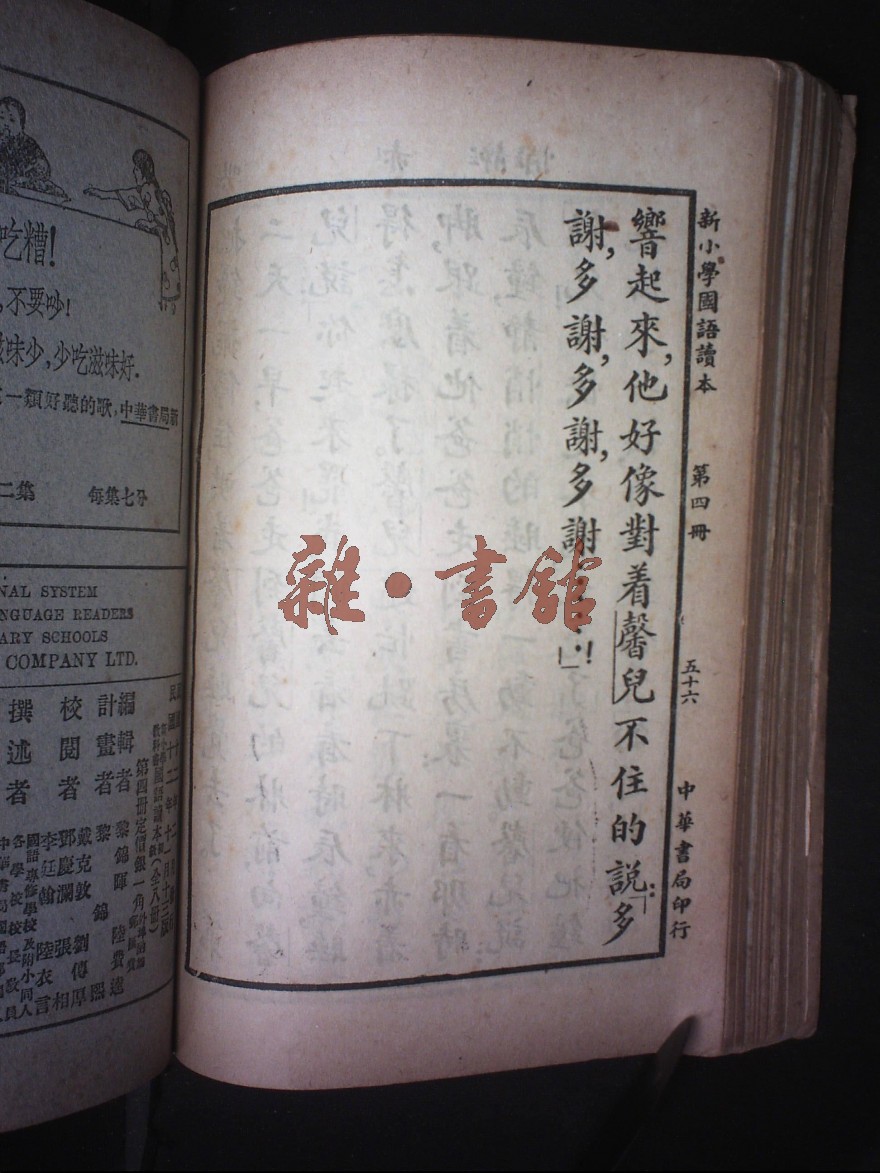 新小學國語讀本 第四冊 五十六 中華書局印行
響起來,他好像對着馨兒不住的說:「多
謝,多謝,多謝,多謝……!」
雜·書館
吃糟!
,不要吵!
滋味少,少吃滋味好.
一類好聽的歌,中華書局新
二集 每集七分
NAL SYSTEM
NGUAGE READERS
ARY SCHOOLS
COMPANY LTD.
國語讀本(全八冊)
第四冊定價銀一角
編輯者 黎錦暉 陸費逵
計畫者 黎錦熙
校閱者 戴克敦 劉傅厚
鄧慶瀾 張相
李廷翰 陸衣言
撰述者 國語專修學校及附小同人
各學校校長教員